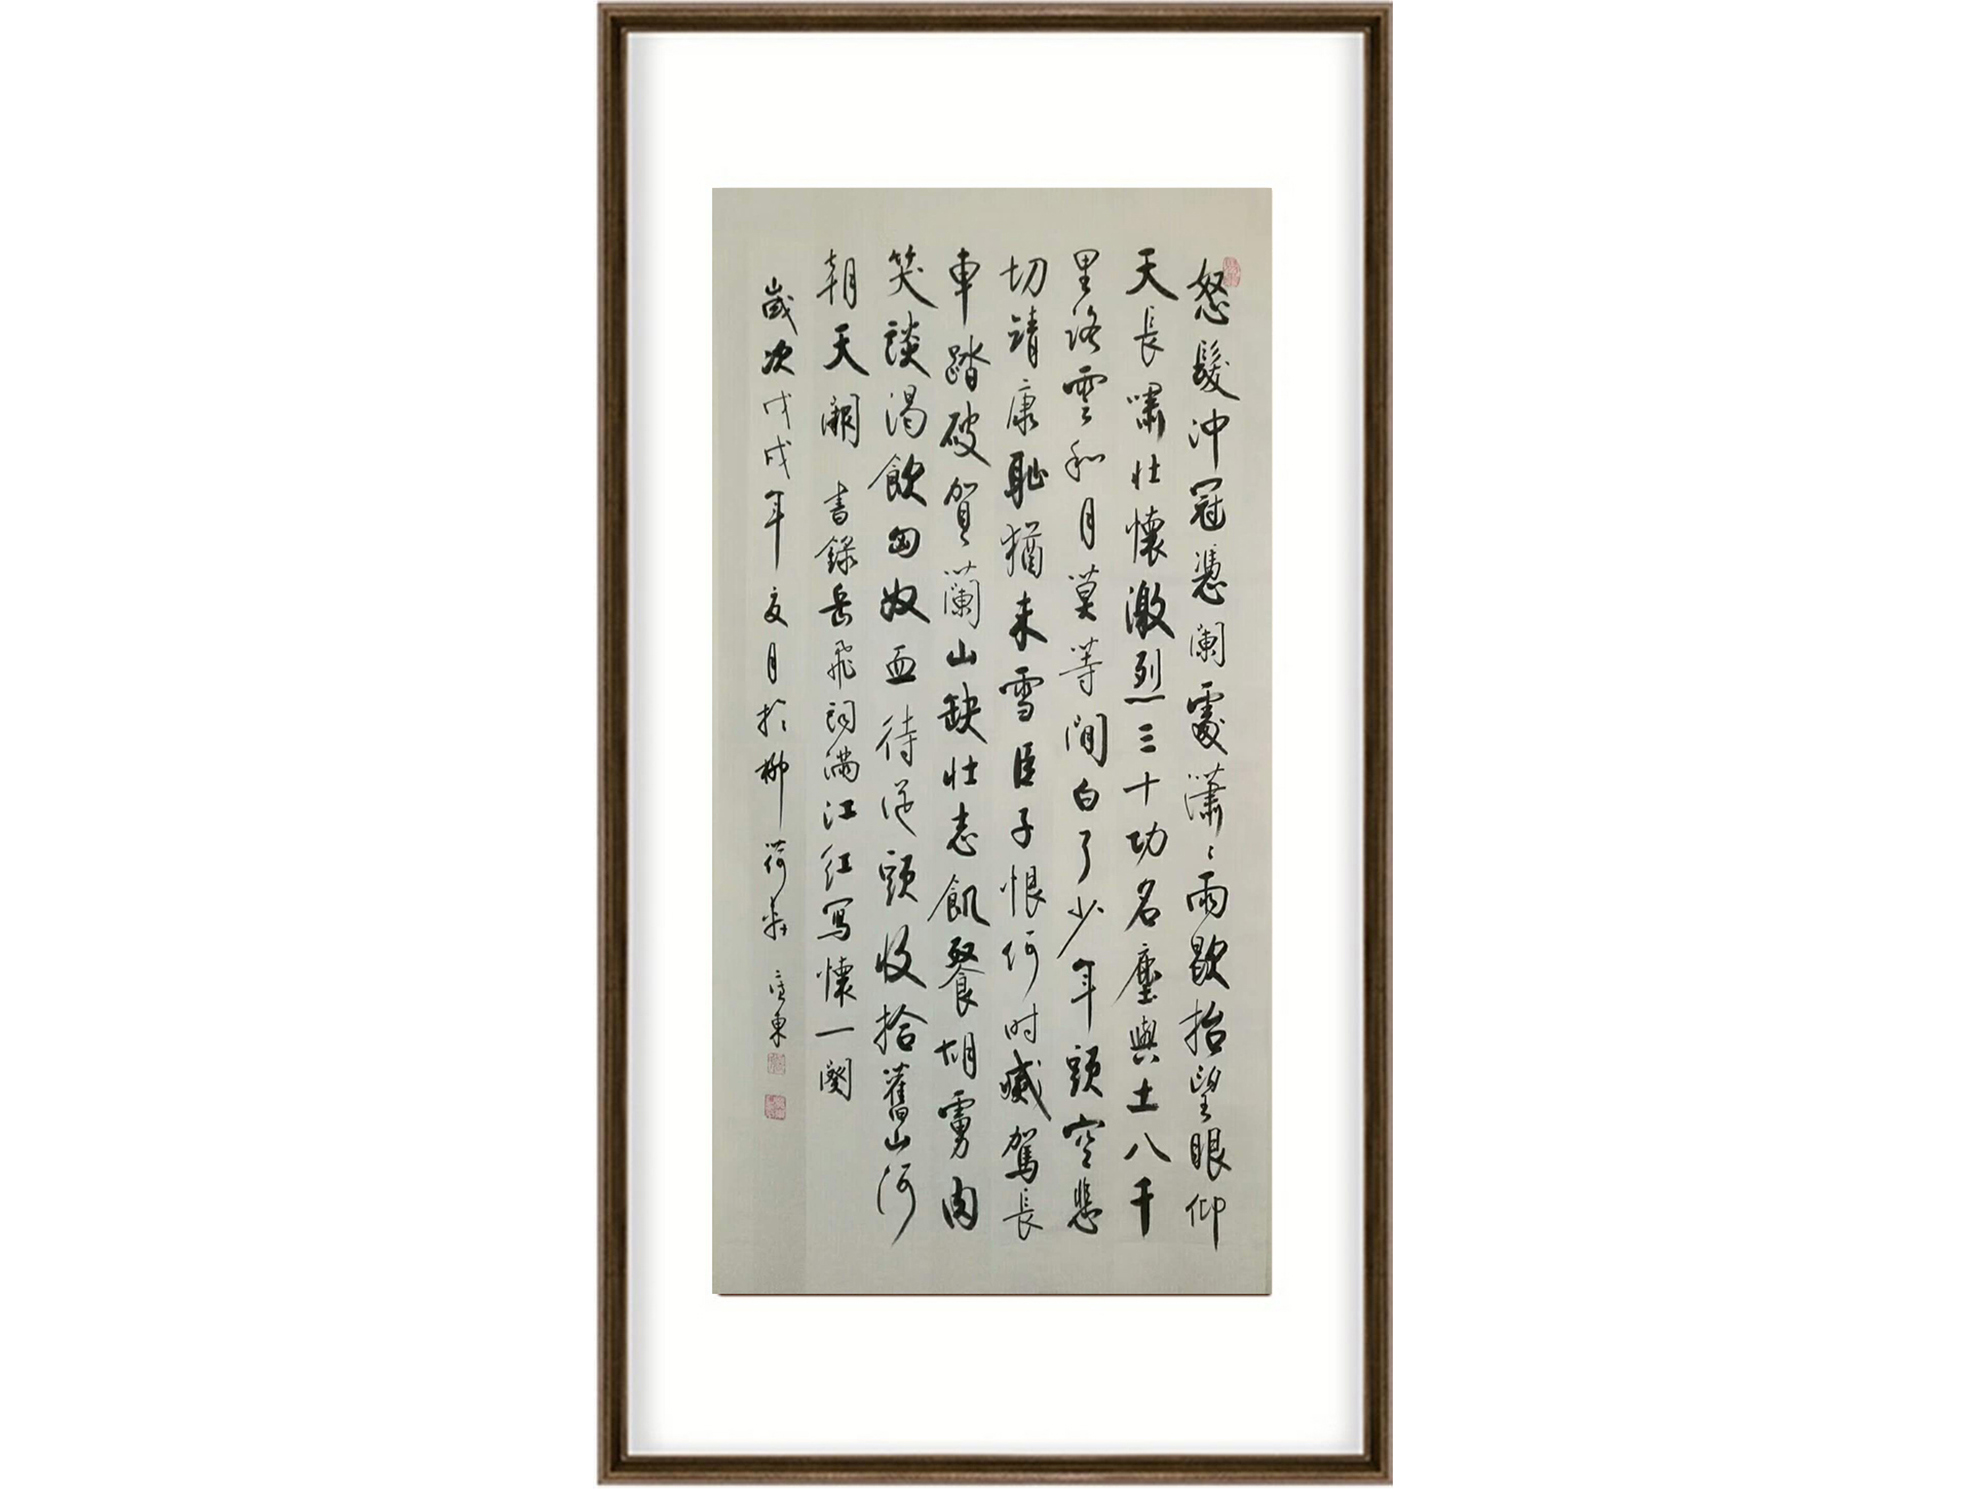 怒髮冲冠憑闌處瀟〻雨歇抬望眼仰
天長嘯壯懷激烈三十功名塵與土八千
里路雲和月莫等閒白了少年頭空悲
切靖康恥猶未雪臣子恨何时滅駕長
車踏破賀蘭山缺壯志飢餐胡虜肉
笑談渴飲匈奴血待從頭收拾舊山河
朝天闕 書錄岳飛詞滿江红寫懷一闋
歲次戊戌年夏月於柳荷 東